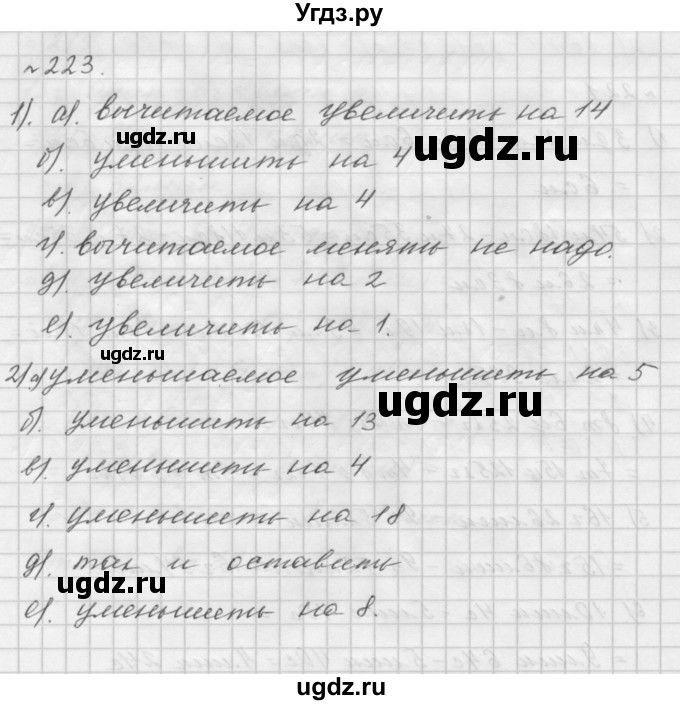 Угдз.ру
№ 223.
1). а). вычитаемое увеличить на 14
ugdz.ru
ugdz.ru
б). уменьшить на 4
в). увеличить на 4
г). вычитаемое менять не надо.
д). увеличить на 2
е). увеличить на 1.
ugdz.ru
2) а) уменьшаемое уменьшить на 5
ugdz.ru
б). уменьшить на 13
в). уменьшить на 4
г). уменьшить на 18
д). так и оставить
ugdz.ru
е). уменьшить на 8.
ugdz.ru